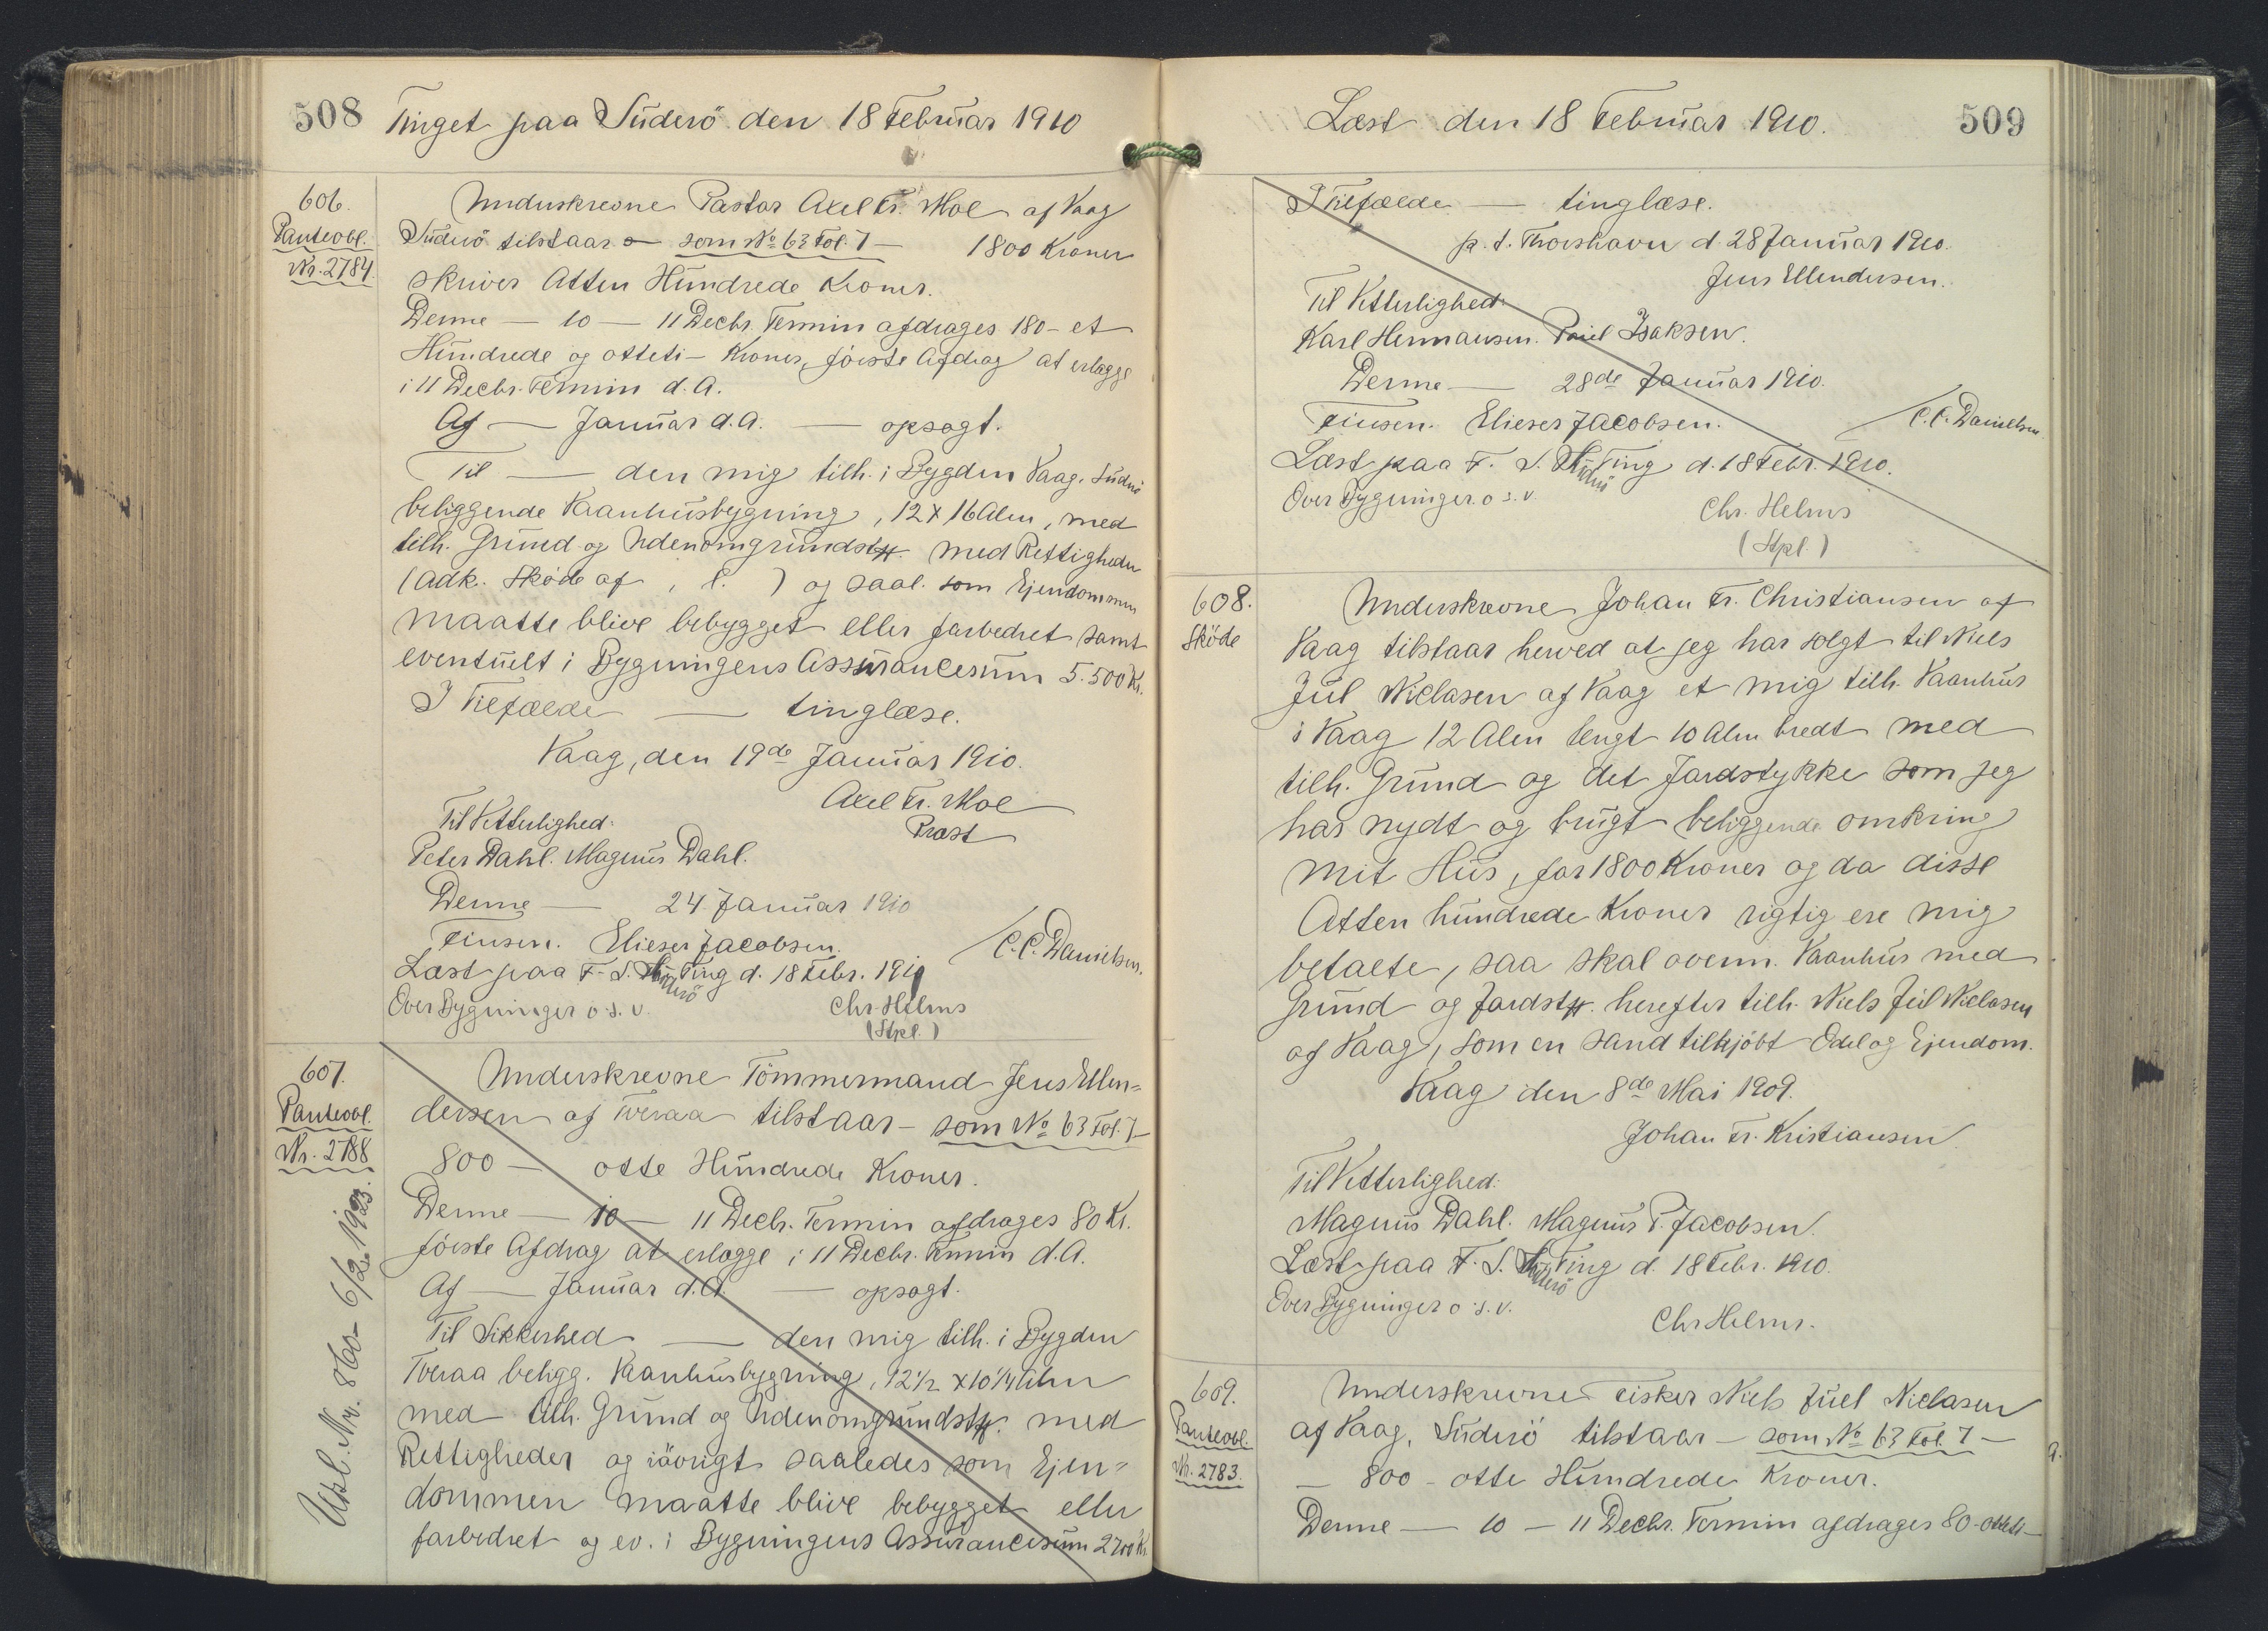 508 Tinget paa Suderö den 18 Februar 1910
606.
Panteobl.
Nr. 2784.
Underskrevne Pastor Axel Fr. Moe af Vaag
Suderö tilstaar — som No 63 Fol. 7 — 1800 Kroner
skriver Atten Hundrede Kroner.
Denne — 10 — 11 Decbr. Termin afdrages 180 - et
Hundrede og otteti - Kroner, förste Afdrag at erlægge
i 11 Decbr. Termin d. A.
Af — Januar d. A. — opsagt.
Til — den mig tilh. i Bygden Vaag, Suderö
beliggende Vaanhusbygning, 12 x 16 Alen, med
tilh. Grund og Udenomgrundstk. med Rettigheder
(Adk. Sköde af , l. ) og saal. som Ejendommen
maatte blive bebygget eller forbedret samt
eventuelt i Bygningens Assurancesum 5.500 Kr.
I Tilfælde — tinglæse.
Vaag, den 19de Januar 1910.
Axel Fr. Moe
Præst
Til Vitterlighed:
Peter Dahl. Magnus Dahl.
Denne — 24 Januar 1910
Finsen. Elieser Jacobsen. / C. C. Danielsen.
Læst paa F. S. Suderö Ting d. 18 Febr. 1910
Over Bygninger o. s. v. Chr. Helms
(Stpl.)
607.
Panteobl.
Nr. 2788
Udsl. Nr. 860 - 6/2 1923.
Underskrevne Tömmermand Jens Ellen=
dersen af Tveraa tilstaar - som No 63 Fol. 7 -
800 — otte Hundrede Kroner.
Denne — 10 — 11 Decb. Termin afdrages 80 Kr.
förste Afdrag at erlægge i 11 Decbr. Termin d. A.
Af — Januar d. A. — opsagt.
Til Sikkerhed — den mig tilh. i Bygden
Tveraa beligg. Vaanhusbygning, 12 1/2 x 10 1/4 Alen
med tilh. Grund og Udenomgrundstk. med
Rettigheder og iövrigt saaledes som Ejen=
dommen maatte blive bebygget eller
forbedret og ev. i Bygningens Assurancesum 2700 Kr.
Læst den 18 Februar 1910. 509
I Tilfælde — tinglæse.
p. t. Thorshavn d. 28 Januar 1910.
Jens Ellendersen.
Til Vitterlighed:
Karl Hermansen. Poul Isaksen.
Denne — 28de Januar 1910.
Finsen. Elieser Jacobsen. / C. C. Danielsen
Læst paa F. S. Suderö Ting d. 18 Febr. 1910.
Over Bygninger o. s. v. Chr. Helms
(Stpl.)
608.
Sköde
Underskrevne Johan Fr. Christiansen af
Vaag tilstaar herved at jeg har solgt til Niels
Juul Niclasen af Vaag et mig tilh. Vaanhus
i Vaag 12 Alen lengt 10 Alen bredt med
tilh. Grund og det Jordstykke som jeg
har nydt og brugt beliggende omkring
mit Hus, for 1800 Kroner og da disse
Atten hundrede Kroner rigtig ere mig
betalte, saa skal ovenn. Vaanhus med
Grund og Jordstk. herefter tilh. Niels Juul Niclasen
af Vaag, som en sand tilkjöbt Odel og Ejendom.
Vaag den 8de Mai 1909.
Johan Fr. Kristiansen
Til Vitterlighed:
Magnus Dahl. Magnus P. Jacobsen.
Læst paa F. S. Suderö Ting d. 18 Febr. 1910.
Over Bygninger o. s. v. Chr Helms.
609.
Panteobl.
Nr. 2783.
Underskrevne Fisker Niels Juel Niclasen
af Vaag, Suderö tilstaar - som No 63 Fol. 7 -
- 800 - otte Hundrede Kroner.
Denne — 10 — 11 Decbr. Termin afdrages 80 - otteti -